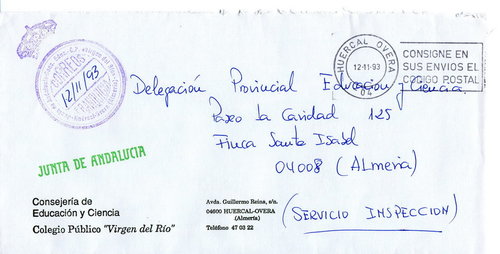 CORREOS
12/11/93
HUERCAL OVERA
12-11-93
04
CONSIGNE EN
SUS ENVIOS EL
CODIGO POSTAL
Delegación Provincial Educación y Ciencia
Paseo La Caridad 125
Finca Santa Isabel
04008 (ALmería)
(SERVICIO INSPECCION)
JUNTA DE ANDALUCIA
Consejería de
Educación y Ciencia
Colegio Público "Virgen del Río"
Avda. Guillermo Reina, s/n.
04600 HUERCAL-OVERA
(Almería)
Teléfono 47 03 22